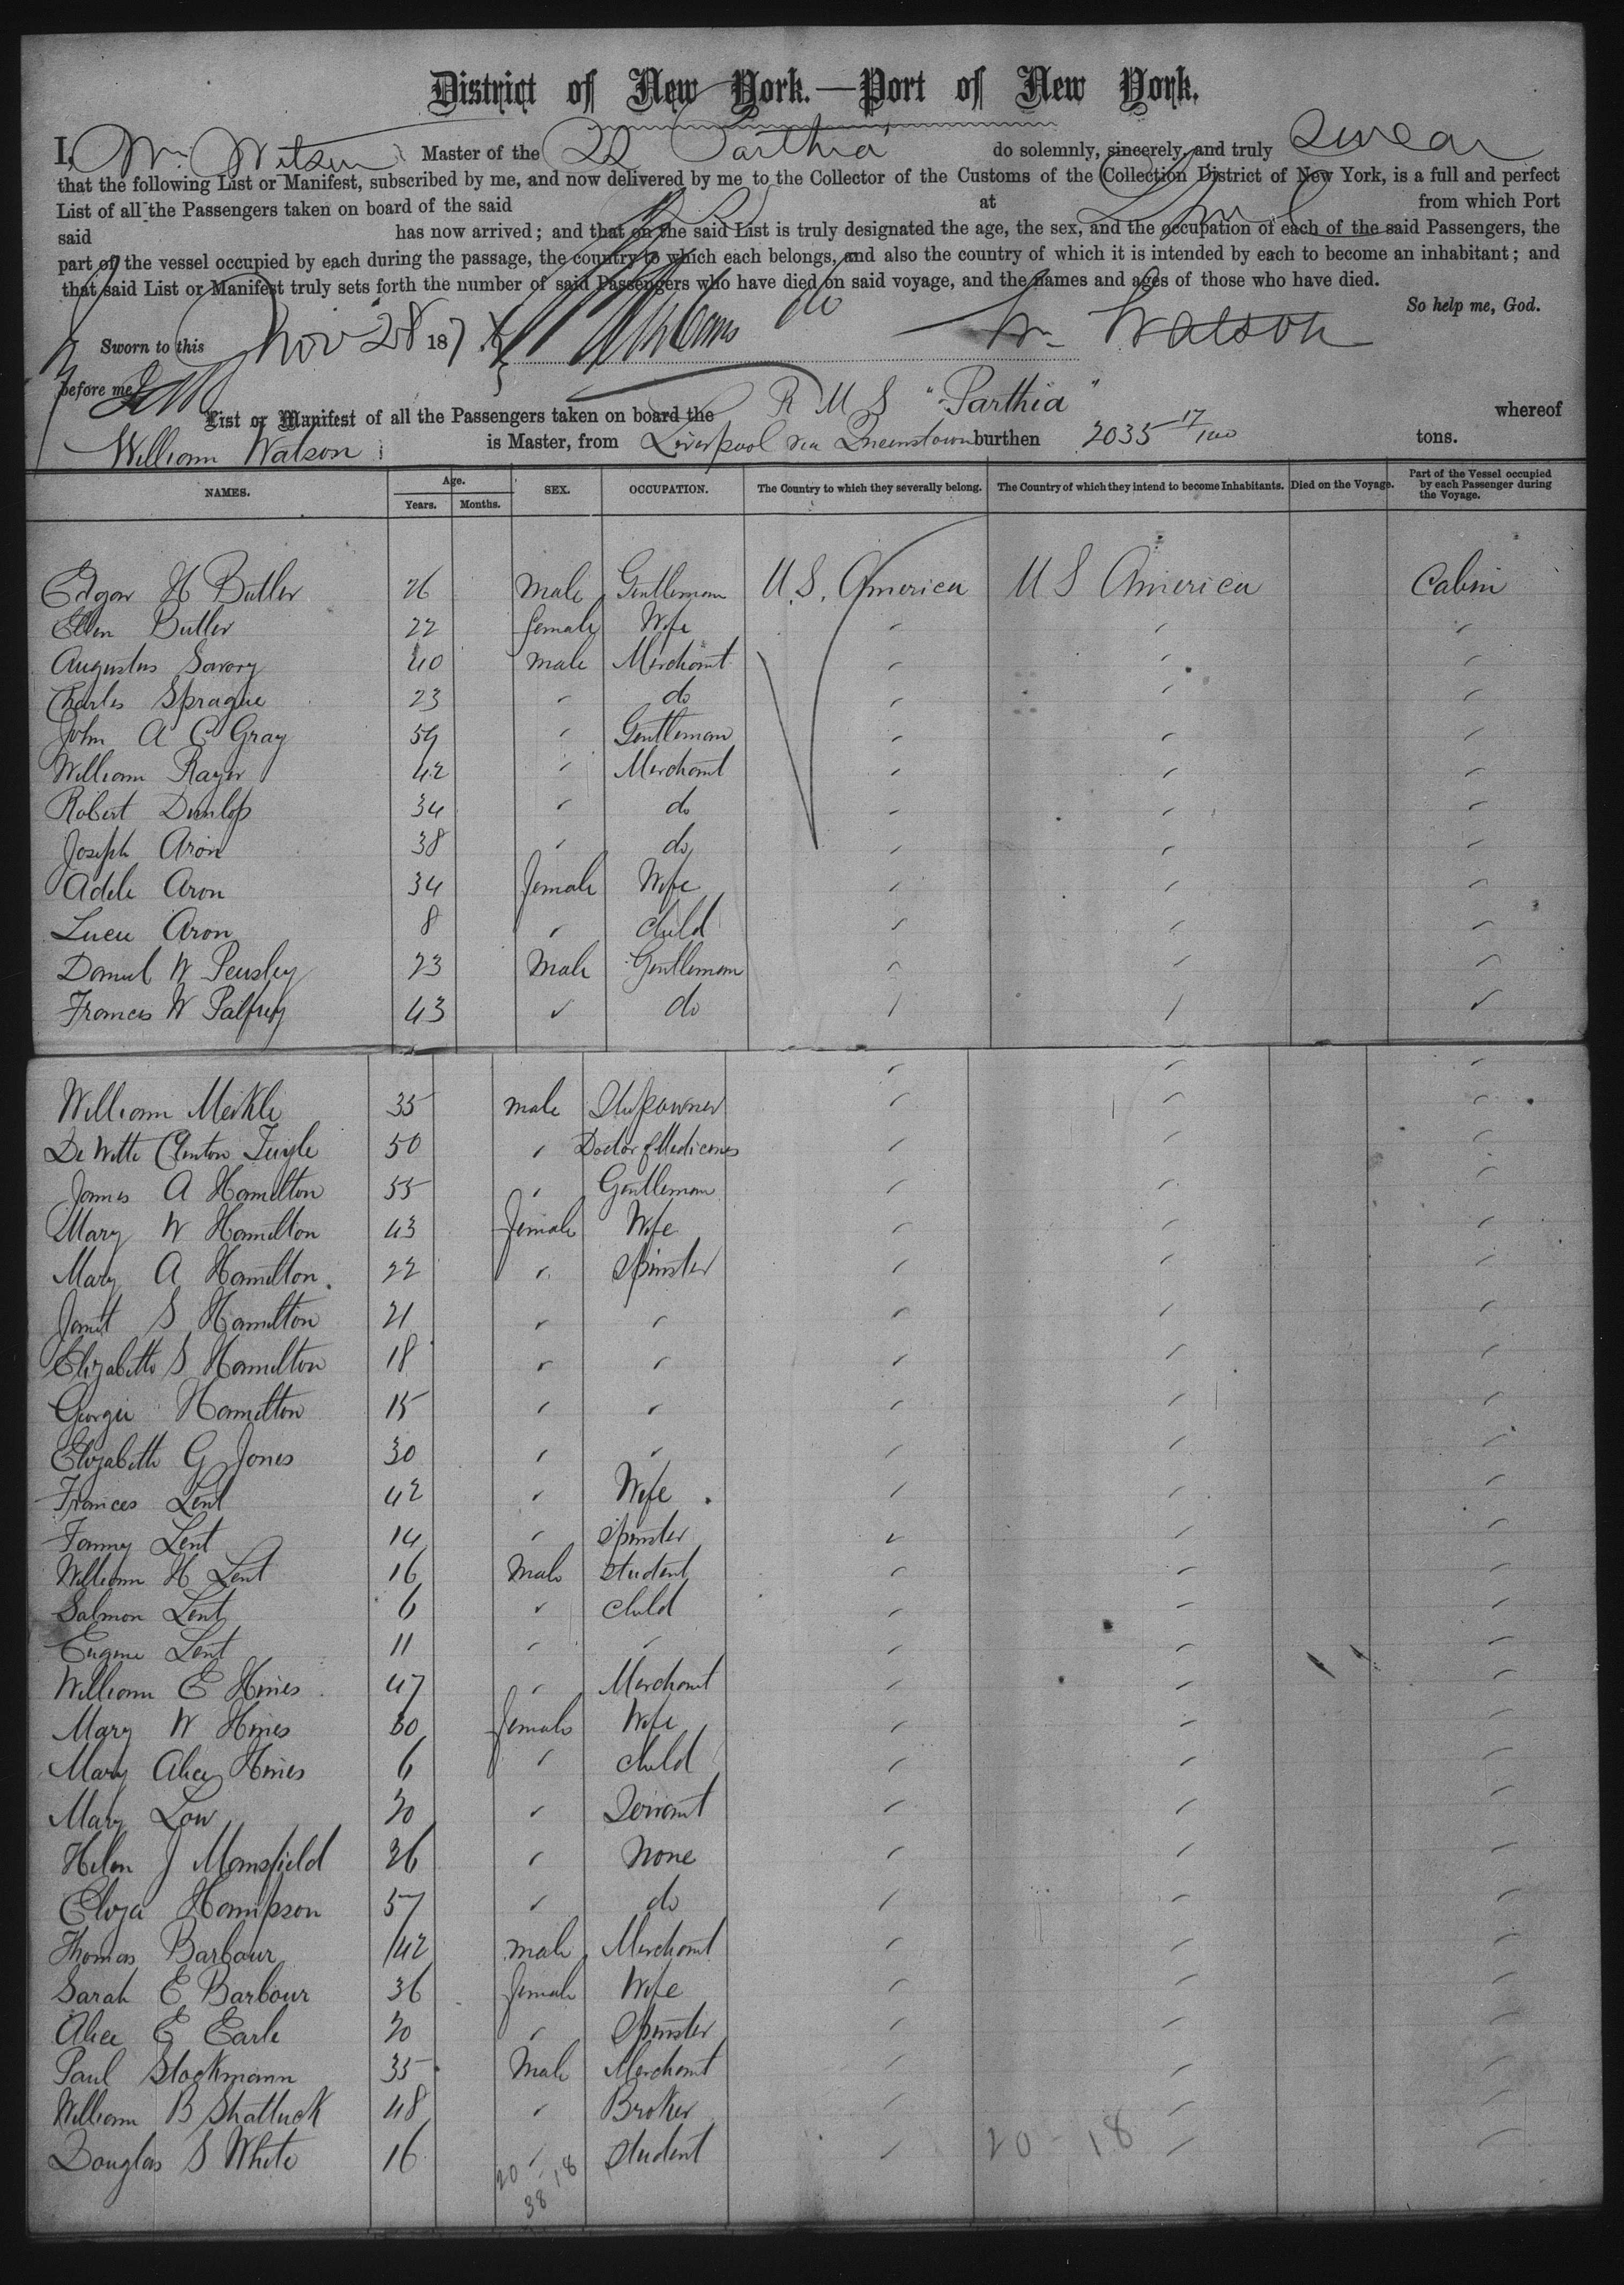 District of New York.—Port of New York.
I, Wm. Watson Master of the SS Parthia do solemnly, sincerely, and truly swear
that the following List or Manifest, subscribed by me, and now delivered by me to the Collector of the Customs of the Collection District of New York, is a full and perfect
List of all the Passengers taken on board of the said at from which Port
said has now arrived; and that on the said List is truly designated the age, the sex, and the occupation of each of the said Passengers, the
part of the vessel occupied by each during the passage, the country to which each belongs, and also the country of which it is intended by each to become an inhabitant; and
that said List or Manifest truly sets forth the number of said Passengers who have died on said voyage, and the names and ages of those who have died.
So help me, God.
Sworn to this Nov 28 187 Wm Watson
before me
List or Manifest of all the Passengers taken on board the R M S "Parthia" whereof
William Watson is Master, from Liverpool via Queenstown burthen 2035 17/100 tons.
NAMES. Age. Years. Months. SEX. OCCUPATION. The Country to which they severally belong. The Country of which they intend to become Inhabitants. Died on the Voyage. Part of the Vessel occupied by each Passenger during the Voyage.
Edgar H Butler 26 Male Gentleman U.S. America U S America Cabin
Ellen Butler 22 female Wife
Augustus Savory 40 male Merchant
Charles Sprague 23 " do
John A C Gray 59 " Gentleman
William Rayer 42 " Merchant
Robert Dunlop 34 " do
Joseph Aron 38 " do
Adele Aron 34 female Wife
Lucie Aron 8 " child
Daniel W Peusley 23 Male Gentleman
Frances W Palfrey 43 " do
William Meikle 35 male Shipowner
De Witte Clinton 50 " Doctor of Medicines
James A Hamilton 55 " Gentleman
Mary W Hamilton 43 female Wife
Mary A Hamilton 22 " Spinster
Janet S Hamilton 21 " "
Elizabeth S Hamilton 18 " "
Georgie Hamilton 15 " "
Elizabeth G Jones 30 " "
Frances Lent 42 " Wife
Fanny Lent 14 " Spinster
William H Lent 16 Male Student
Salmon Lent 6 " child
Eugene Lent 11 " "
William E Hines 47 " Merchant
Mary W Hines 30 female Wife
Mary Alice Hines 6 " child
Mary Low 20 " Servant
Helen J Mansfield 26 " None
Eliza Hampson 57 " do
Thomas Barbour 42 male Merchant
Sarah E Barbour 36 female Wife
Alice E Earle 20 " Spinster
Paul Stockmann 35 Male Merchant
William B Shattuck 48 " Broker
Douglas S White 16 " Student
20 - 18
20 18
38